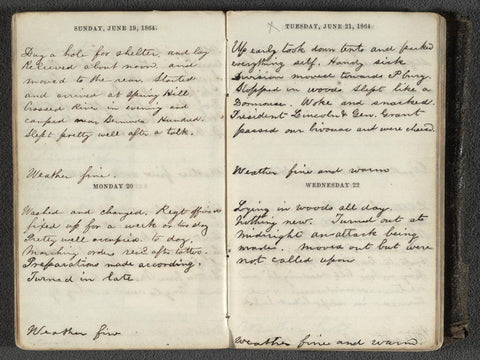 SUNDAY, JUNE 19, 1864.
Dug a hole for shelter, and lay
Relieved about noon, and
moved to the rear Started
and arrived at Spring Hill
Crossed River in evening and
camped near Bermuda Hundred.
Slept pretty well after a talk.
Weather fine.
MONDAY 20
Washed and changed. Regt officers
fixed up for a week or
Pretty well occupied to day.
Marching orders recd after tattoo.
Preparations made according.
Turned in late
Weather fine
TUESDAY, JUNE 21, 1864.
Up early took down tents and packed
everything self. Handy sick
Division moved towards P'burg.
Stopped in woods Slept like a
Dormouse. Woke and snacked.
President Lincoln & Gen. Grant
passed our bivouac and were cheered.
Weather fine and warm
WEDNESDAY 22
Lying in woods all day.
Nothing new. Turned out at
Midnight an attack being
made. Moved out but were
not called upon
Weather fine and warm.